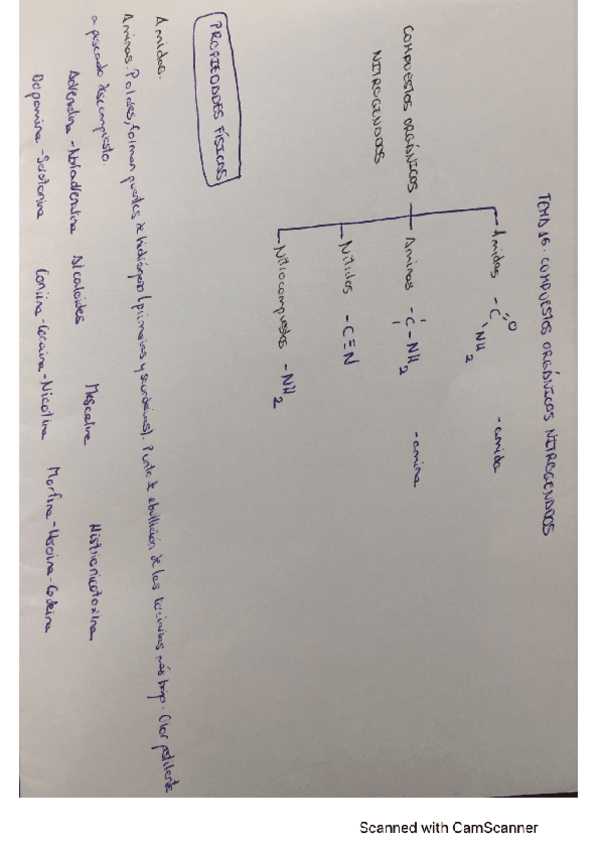 TEMA 16. COMPUESTOS ORGÁNICOS NITROGENADOS
Amidas -C O NH2 -amida
COMPUESTOS ORGÁNICOS NITROGENADOS
Aminas -C-NH2 -amina
Nitrilos -C≡N
Nitrocompuestos -NH2
PROPIEDADES FÍSICAS
Amidas.
Aminas. Polares, forman puentes de hidrógeno (primarias y secundarias). Punto de ebullición de las terciarias más bajo. Olor pestilente
a pescado descompuesto.
Adrenalina - Noradrenalina Alcaloides Mescalina Histrionicotoxina
Dopamina - Serotonina Coniina - Cocaína - Nicotina Morfina - Heroína - Codeína
Scanned with CamScanner